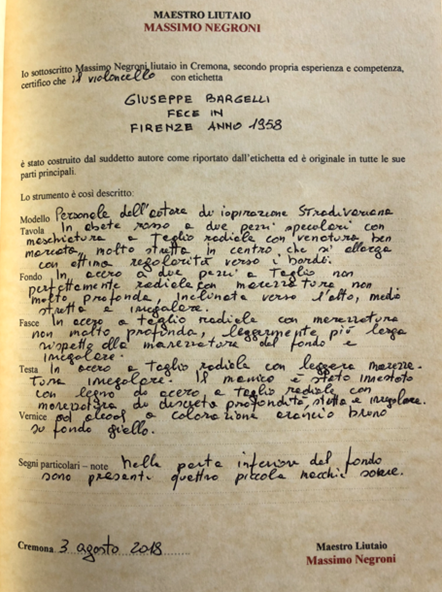 MAESTRO LIUTAIO
MASSIMO NEGRONI
Io sottoscritto Massimo Negroni, liutaio in Cremona, secondo propria esperienza e competenza,
certifico che il violoncello con etichetta
GIUSEPPE BARGELLI
FECE IN
FIRENZE ANNO 1958
è stato costruito dal suddetto autore come riportato dall'etichetta ed è originale in tutte le sue
parti principali.
Lo strumento è così descritto:
Modello Personale dell'autore di ispirazione Stradivariana
Tavola In abete rosso a due pezzi speculari con
maschiatura a taglio radiale con venatura ben
marcata, molto stretta in centro che si allarga
con ottima regolarità verso i bordi.
Fondo In acero a due pezzi a taglio non
perfettamente radiale con marezzatura non
molto profonda, inclinata verso l'alto, medio
stretta e irregolare.
Fasce In acero a taglio radiale con marezzatura
non molto profonda, leggermente più larga
rispetto alla marezzatura del fondo e
irregolare.
Testa In acero a taglio radiale con leggera marezza-
tura irregolare. Il manico è stato innestato
con legno di acero a taglio radiale con
marezzatura di discreta profondità, stretta e irregolare.
Vernice ad alcool a colorazione arancio bruno
su fondo giallo.
Segni particolari – note Nella parte inferiore del fondo
sono presenti quattro piccole macchie scure.
Cremona 3 agosto 2018
Maestro Liutaio
Massimo Negroni